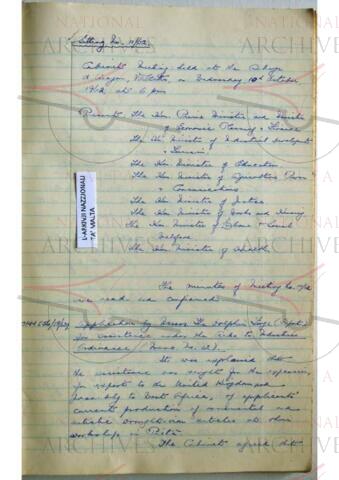 Sitting No. 11/62
Cabinet Meeting held at the Auberge
d'Aragon, Valletta, on Wednesday 10th October
1962 at 6 pm
Present: The Hon Prime Minister and Minister
of Economic Planning & Finance
The Hon Minister of Industrial Development
& Tourism
The Hon Minister of Education
The Hon Minister of Agriculture Power
& Communications
The Hon Minister of Justice
The Hon Minister of Works and Housing
The Hon Minister of Labour & Social
Welfare
The Hon Minister of Health
L-ARKIVJI NAZZJONALI
TA' MALTA
The minutes of Meeting No. 10/62
were read and confirmed
Application by Messrs The Dolphin Forge
for assistance under the Aids to Industries
Ordinance (Memo No.
It was explained that
the assistance was sought for the expansion,
for export to the United Kingdom and
possibly to West Africa, of applicants'
current production of ornamental and
artistic wrought-iron articles at their
workshops in Pietà
The Cabinet agreed that
NATIONAL
ARCHIVES